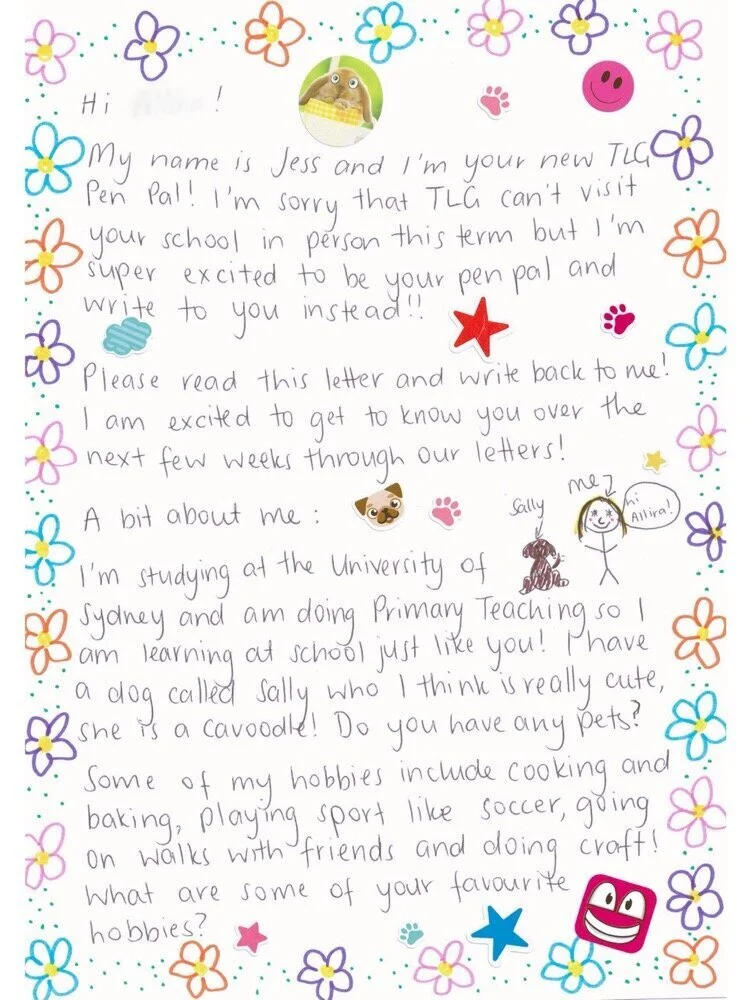 Hi !
My name is Jess and I'm your new TLG
Pen Pal! I'm sorry that TLG can't visit
your school in person this term but I'm
super excited to be your pen pal and
write to you instead!!
Please read this letter and write back to me!
I am excited to get to know you over the
next few weeks through our letters!
A bit about me:
Sally
me
hi
Allira!
I'm studying at the University of
Sydney and am doing Primary Teaching so I
am learning at school just like you! I have
a dog called Sally who I think is really cute,
she is a cavoodle! Do you have any pets?
Some of my hobbies include cooking and
baking, playing sport like soccer, going
on walks with friends and doing craft!
What are some of your favourite
hobbies?